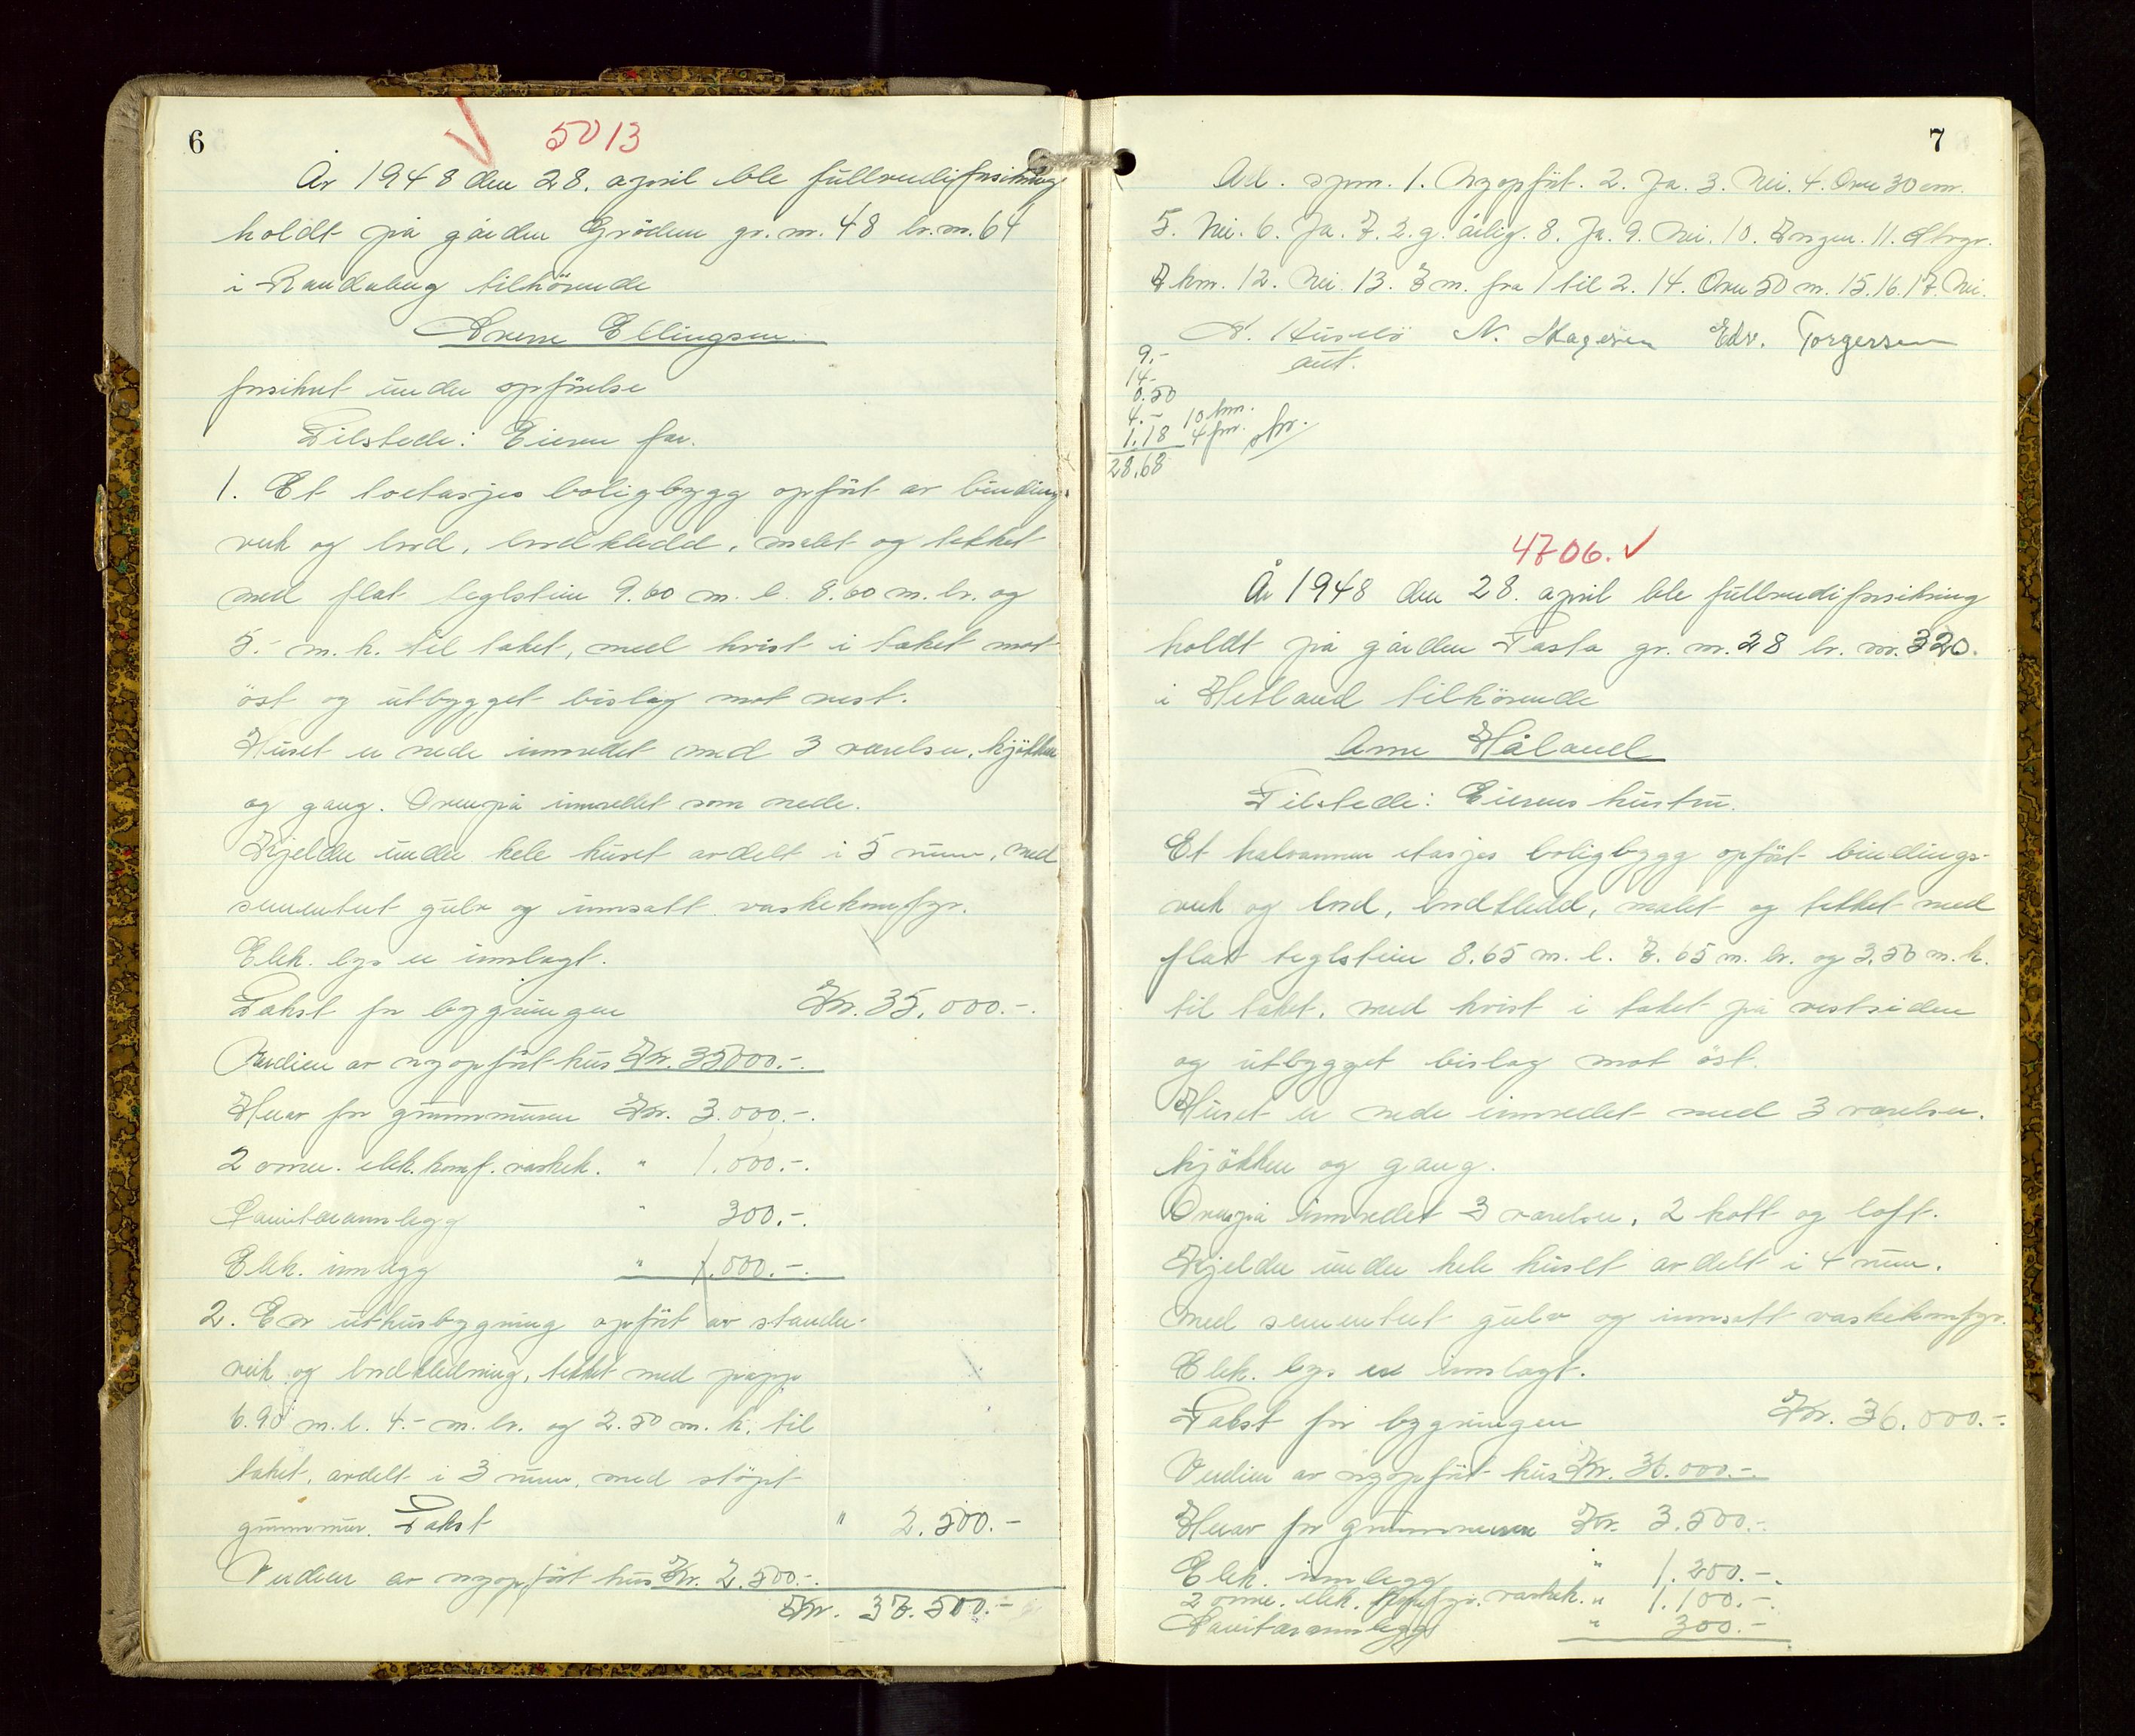 6
5013
År 1948 den 28. april ble fullverdiforsikring
holdt på gården Grödem gr. nr. 48 br. nr. 64
i Randaberg tilhörende
Sverre Ellingsen.
forsikret under opförelse
Tilstede: Eieren far.
1. Et toetasjes boligbygg opfört av bindings-
verk og bord, bordkledd, malet og tekket
med flat teglstein 9.60 m. l. 8.60 m. br. og
5.- m. h. til taket, med kvist i taket mot
öst og utbygget bislag mot vest.
Huset er nede innredet med 3 værelser, kjökken
og gang. Ovenpå innredet som nede.
Kjelder under hele huset avdelt i 5 rum, med
sementert gulv og innsatt vaskekomfyr.
Elek. lys er innlagt.
Takst for bygningen Kr. 35.000.-
Verdien av nyopfört hus Kr. 35000.-
Herav for grunnmuren Kr. 3.000.-
2 ovner. elek. komf. vaskek. " 1.000.-
Sanitæranlegg " 300.-
Elek. innlegg " 1.000.-
2. En uthusbygning opfört av stender-
verk og bordkledning, tekket med papp
6.90 m. l. 4.- m. br. og 2.50 m. h. til
taket, avdelt i 3 rum, med stöpt
grunnmur. Takst " 2.500.-
Verdien av nyopfört hus Kr. 2.500.-
Kr. 37.500.-
7
Alil. spm. 1. Nyopfört. 2. Ja. 3. Nei. 4. Over 30 cm.
5. Nei. 6. Ja. 7. 2. g. årlig. 8. Ja. 9. Nei. 10. Ingen. 11. Stvgr.
7 km. 12. Nei. 13. 3 m. fra 1 til 2. 14. Over 50 m. 15. 16. 17. Nei.
N. Edv. Torgersen
9.- aut.
14.-
0.50
4.- 10 km.
1.18 4 km.
28.68
4706.
År 1948 den 28. april ble fullverdiforsikring
holdt på gården Tasta gr. nr. 28 br. nr. 320.
i Hetland tilhörende
Arne Håland
Tilstede: Eierens hustru.
Et halvannen etasjes boligbygg opfört bindings-
verk og bord, bordkledd, malet og tekket med
flat teglstein 8.65 m. l. 7.65 m. br. og 3.50 m. h.
til taket, med kvist i taket på vestsiden
og utbygget bislag mot öst.
Huset er nede innredet med 3 værelser,
kjökken og gang.
Ovenpå innredet 3 værelser, 2 kott og loft.
Kjelder under hele huset avdelt i 4 rum,
med sementert gulv og innsatt vaskekomfyr.
Elek. lys er innlagt.
Takst for bygningen Kr. 36.000.-
Verdien av nyopfört hus Kr. 36.000.-
Herav for grunnmuren Kr. 3.500.-
Elek. innlegg " 1.200.-
2 ovner. elek. komfyr. vaskek. " 1.100.-
Sanitæranlegg " 300.-